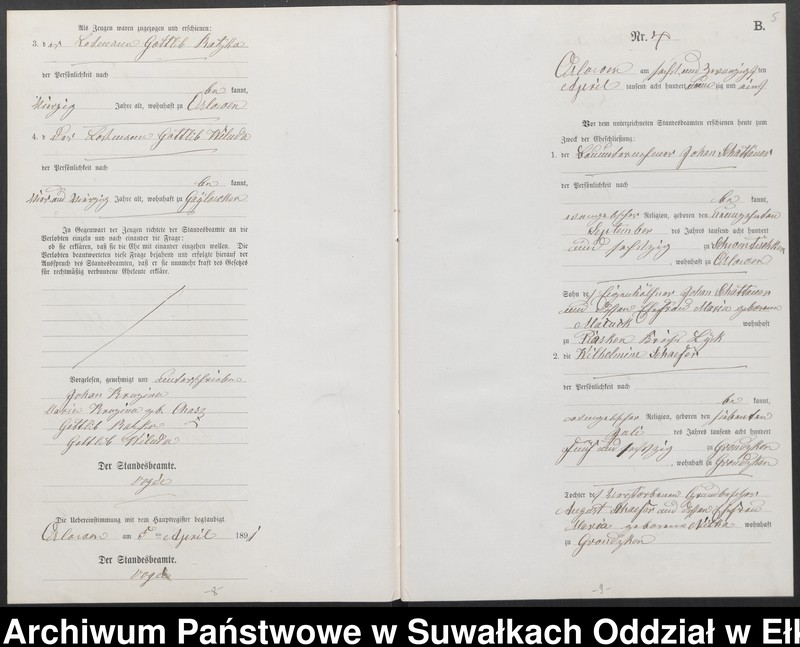 Als Zeugen waren zugezogen und erschienen:
3. der Losmann Gottlieb Ratzka
der Persönlichkeit nach
be kannt,
vierzig Jahre alt, wohnhaft zu Orlowen
4. der Losmann Gottlieb Wiluda
der Persönlichkeit nach
be kannt,
vier und vierzig Jahre alt, wohnhaft zu
In Gegenwart der Zeugen richtete der Standesbeamte an die
Verlobten einzeln und nach einander die Frage:
ob sie erklären, daß sie die Ehe mit einander eingehen wollen. Die
Verlobten beantworteten diese Frage bejahend und erfolgte hierauf der
Ausspruch des Standesbeamten, daß er sie nunmehr kraft des Gesetzes
für rechtmäßig verbundene Eheleute erkläre.
Vorgelesen, genehmigt und unterschrieben
Johan
Marie geb.
Gottlieb Ratzka
Gottlieb Wiluda
Der Standesbeamte.
Die Uebereinstimmung mit dem Hauptregister beglaubigt
Orlowen am 5ten April 1891
Der Standesbeamte.
-8-
5
B.
Nr. 7
Orlowen am sechs und zwanzigsten
April tausend acht hundert neunzig und eins
Vor dem unterzeichneten Standesbeamten erschienen heute zum
Zweck der Eheschließung:
1. der Bauunternehmer Johan Schattauer
der Persönlichkeit nach
be kannt,
evangelischer Religion, geboren den neunzehnten
September des Jahres tausend acht hundert
und sechszig zu
, wohnhaft zu Orlowen
Sohn des Eigenkäthner Johan Schattauer
und dessen Ehefrau Maria geborene
wohnhaft
zu Piasken Kreis Lyck
2. die Wilhelmine Schaefer
der Persönlichkeit nach
be kannt,
evangelischer Religion, geboren den siebenten
Juli des Jahres tausend acht hundert
fünf und sechszig zu Grondzken
, wohnhaft zu Grondzken
Tochter des verstorbenen Grundbesitzer
August Schaefer und dessen Ehefrau
Maria geborene wohnhaft
zu Grondzken
-9-
Archiwum Państwowe w Suwałkach Oddział w Ełk